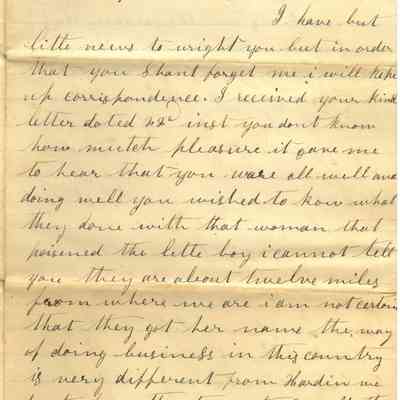 I have but
little news to wright you but in order
that you Shant forget me i will kepe
up corrispondence. I received your kind
letter dated 22d inst you dont know
how mutch pleasure it gave me
to hear that you ware all well and
doing well you wished to know what
they done with that woman that
poisened the little boy i cannot tell
you they are about twelve miles
from where we are i am not certain
that they got her name the way
of doing business in this country
is very different from Hardin we